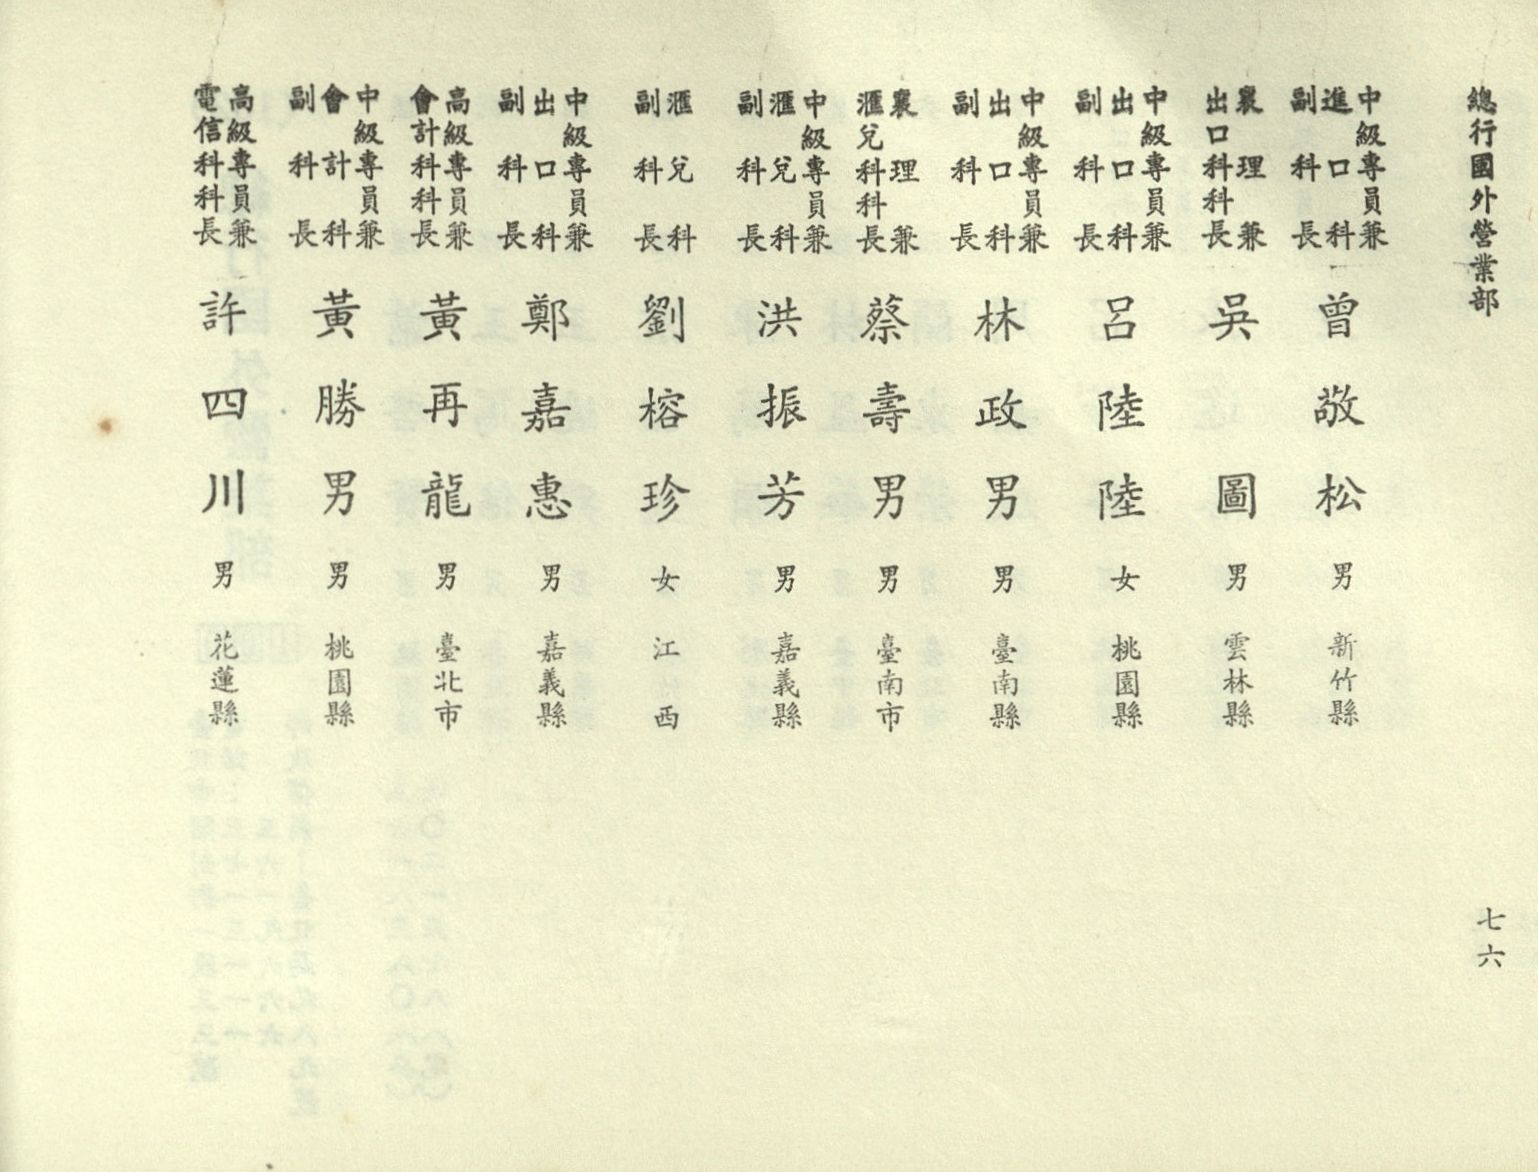 總行國外營業部
中級專員兼
進口科
副科長
曾敬松 男 新竹縣
襄理兼
出口科科長
吳圖 男 雲林縣
中級專員兼
出口科
副科長
呂陸陸 女 桃園縣
中級專員兼
出口科
副科長
林政男 男 臺南縣
襄理兼
滙兌科科長
蔡壽男 男 臺南市
中級專員兼
滙兌科
副科長
洪振芳 男 嘉義縣
滙兌科
副科長
劉榕珍 女 江西
中級專員兼
出口科
副科長
鄭嘉惠 男 嘉義縣
高級專員兼
會計科科長
黃再龍 男 臺北市
中級專員兼
會計科
副科長
黃勝男 男 桃園縣
高級專員兼
電信科科長
許四川 男 花蓮縣
七六